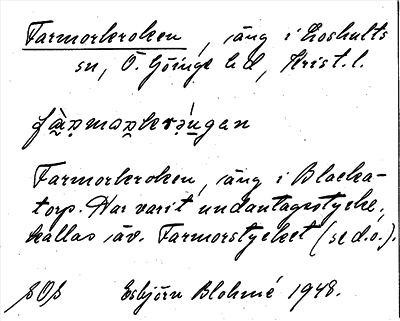 Farmorkroken, äng i Loshults
sn, Ö. Göinge hd, Krist. l.
Farmorkroken, äng i Blacka-
torp. Har varit undantagsstycke,
kallas äv. Farmorstycket (se d.o.).
Esbjörn Blohmé 1948.